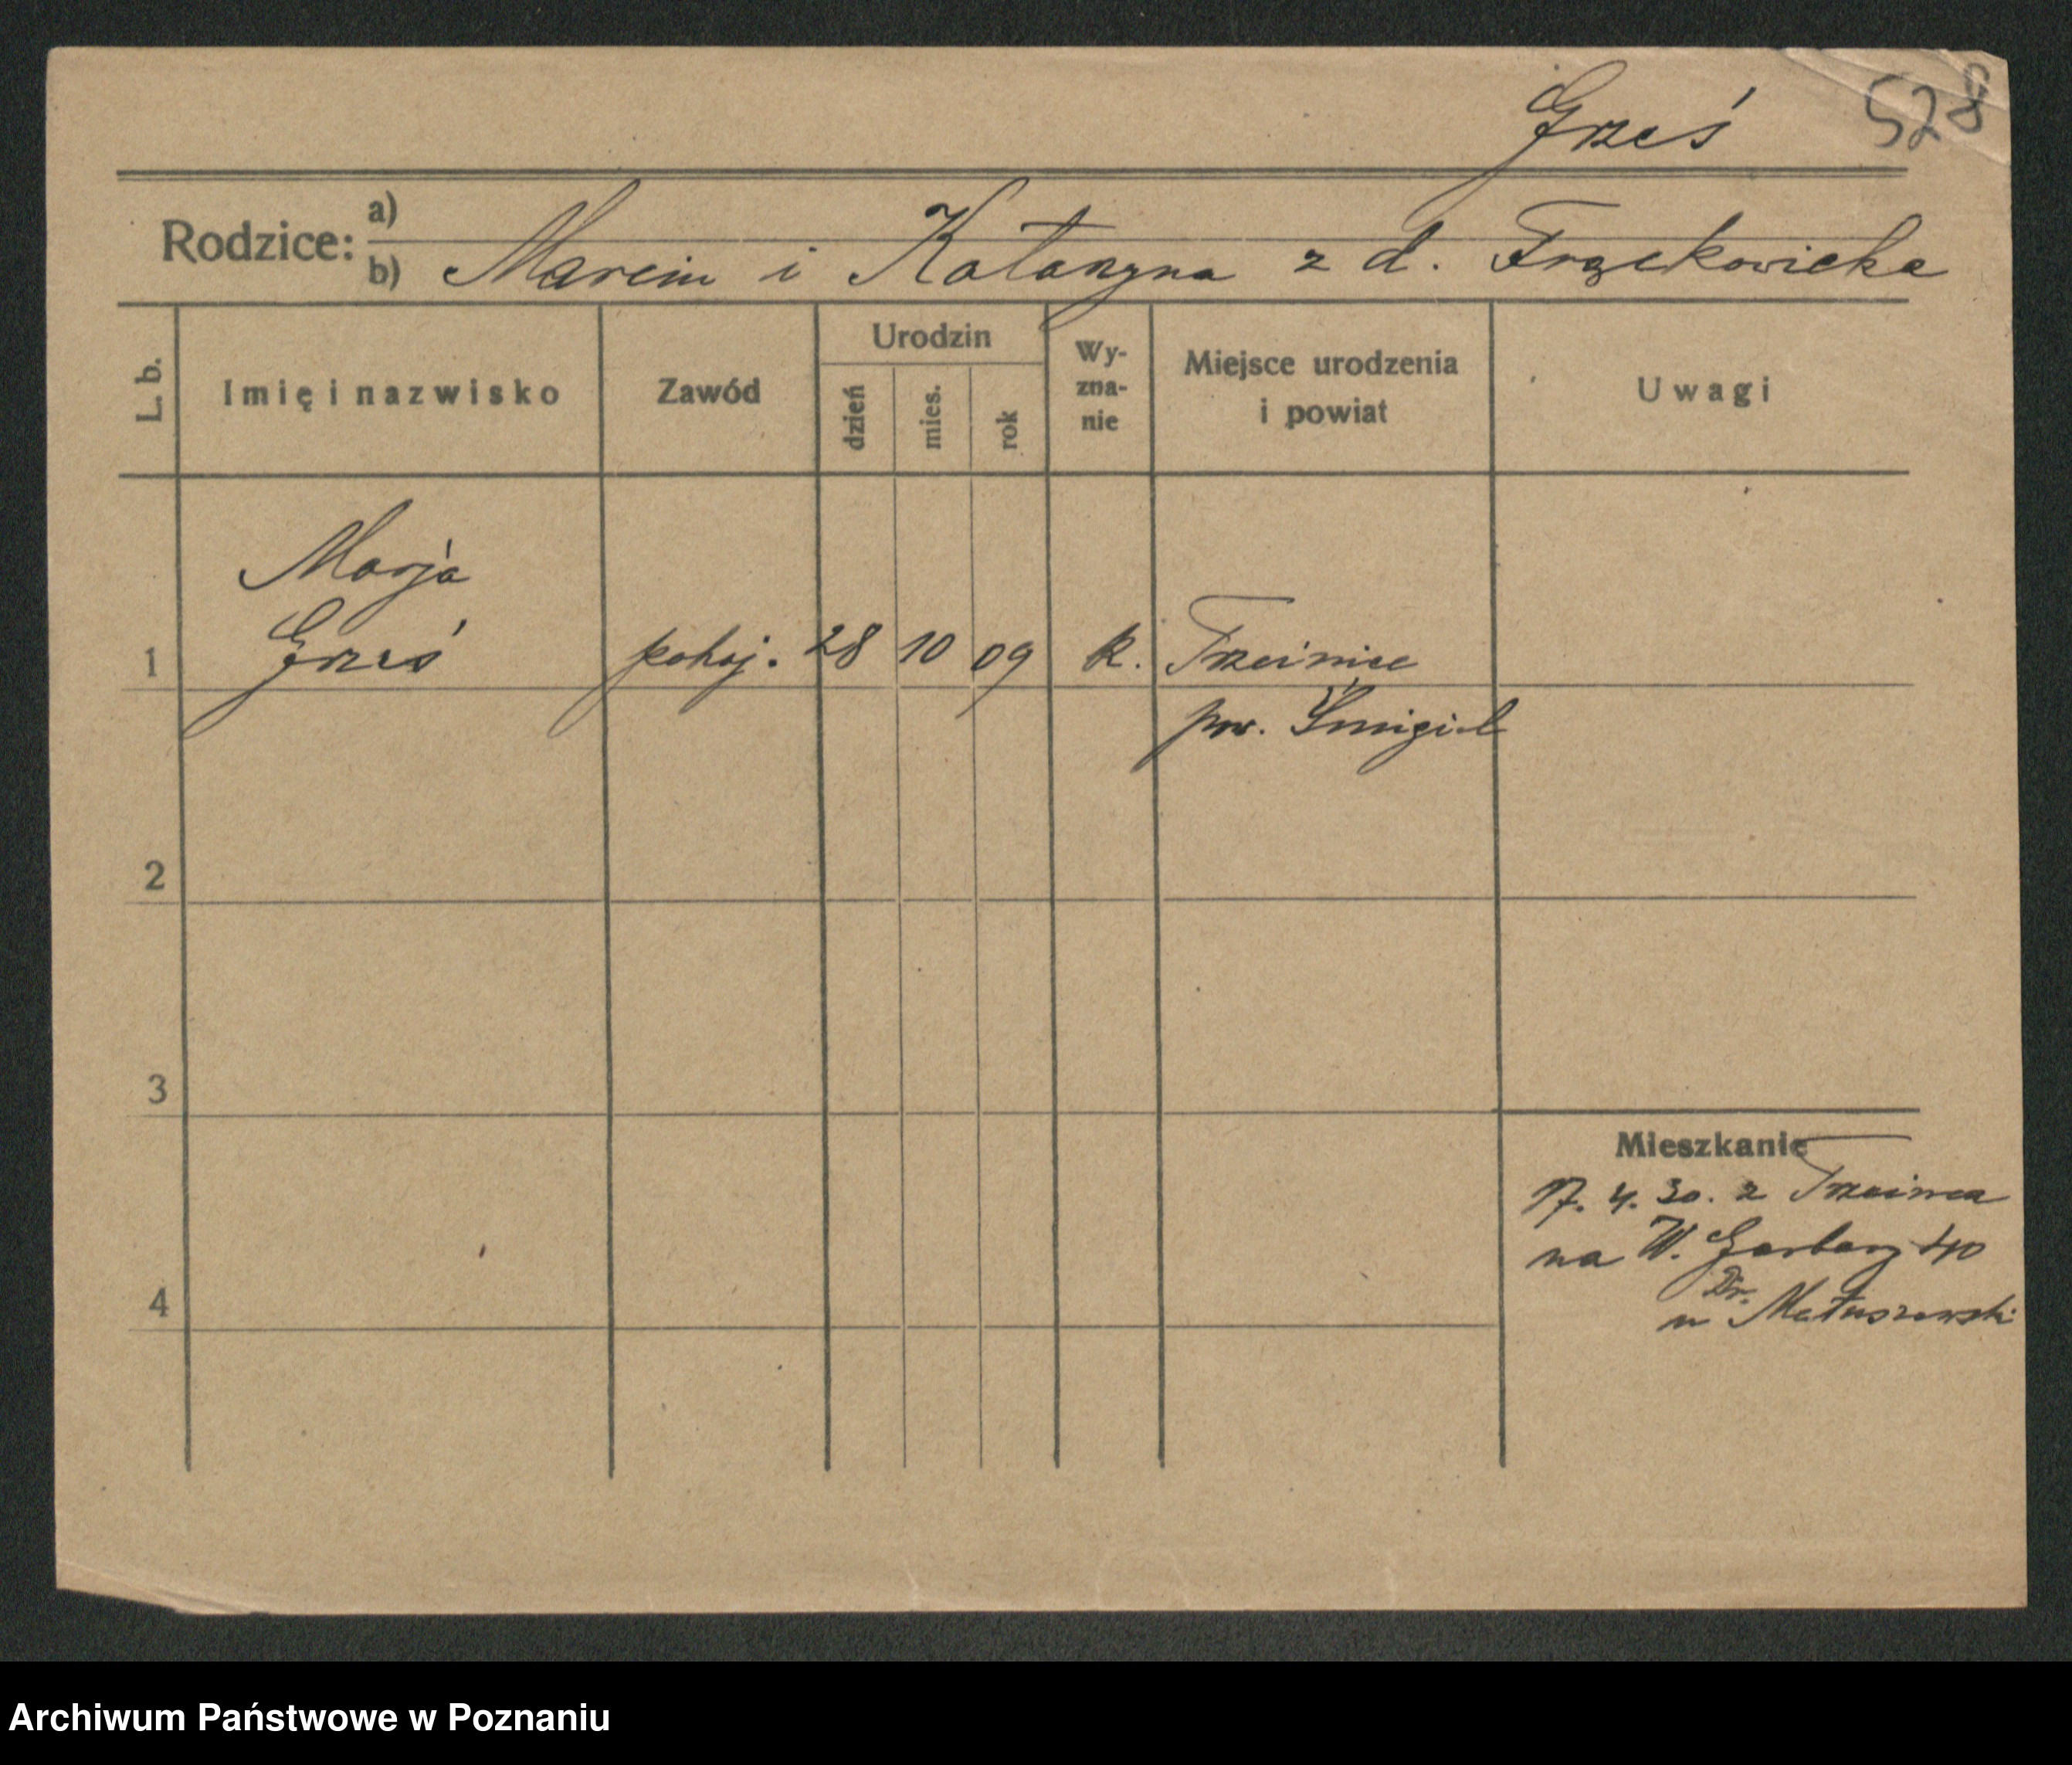 Grześ 528
Rodzice: a)
b) Marcin i Katarzyna z d. Frąckowicka
L. b. Imię i nazwisko Zawód Urodzin dzień mies. rok Wyznanie Miejsce urodzenia i powiat Uwagi
Marja
1 Grześ pokoj. 28 10 09 k. Trzcinice
pow. Śmigiel
2
3
Mieszkanie
17. 4. 30. z Trzcinca
na W. Garbary 40
Dr.
4 u Matuszewski
Archiwum Państwowe w Poznaniu